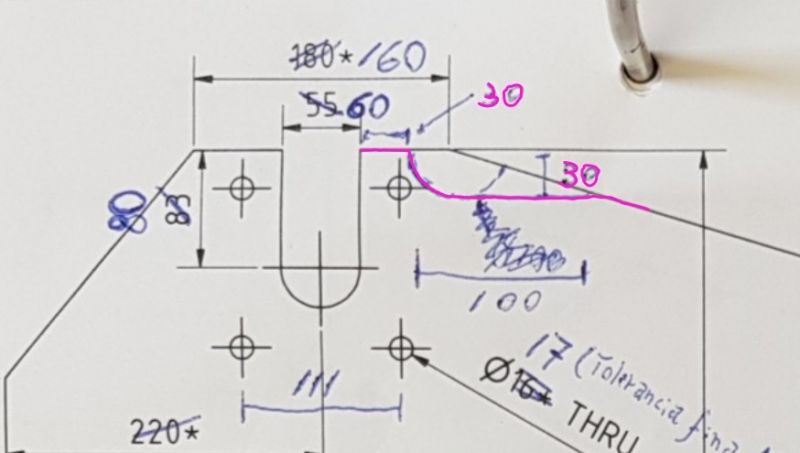 180* 160
55 60
30
30
80 85
100
111
17 (Tolerancia fina
Ø16* THRU
220*